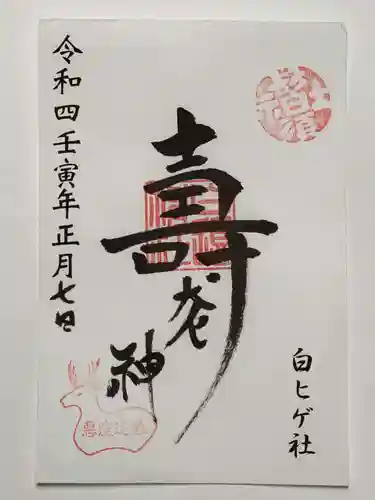 白ヒゲ社
寿老神
令和四壬寅年正月七日